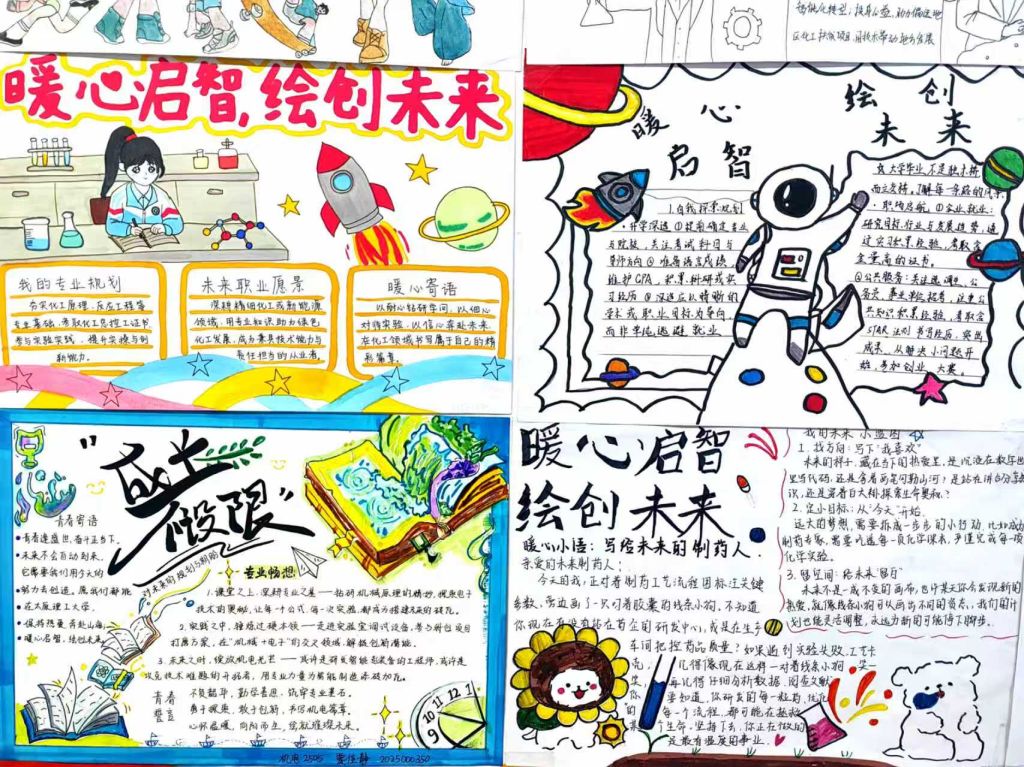 区化工扶贫项目,用技术带动地方发展
暖心启智,绘创未来
我的专业规划
夯实化工原理、反应工程等
专业基础,考取化工总控工证书
参与实验实践,提升实操与创
新能力。
未来职业愿景
深耕精细化工或新能源
领域,用专业知识助力绿色
化工发展,成为兼具技术能力与
责任担当的从业者。
暖心寄语
以耐心钻研学问,以细心
对待实验,以信心奔赴未来
在化工领域书写属于自己的精
彩篇章。
暖心 绘创
启智 未来
1.自我探索规划
·升学深造 ①提前确定专业
与院校,关注考试科目与
导师方向 ②准备语言成绩,
维护GPA,积累科研或实
习经历 ③深造应以清晰的
学术或职业目标为导向
而非单纯逃避就业
2.大学毕业不是独木桥
而立交桥。了解每一条路的风景
·职场启航 ①企业就业:
研究目标行业与发展趋势,通
过实习积累经验,考取含
金量高的证书。
STAR法则书写经历,突出
成果,从解决小问题开
始,参加创业大赛。
"成长不设限"
对未来的规划与期盼
青春寄语
青春逢盛世,奋斗正当下。
未来不会自动到来,
它需要我们用今天的
努力去创造,愿我们都能
在太原理工大学,
保持热爱,奔赴山海。
暖心启智,绘创未来。
专业畅想
1.课堂之上,深耕专业之基——钻研机械原理的精妙,探索电子
技术的奥秘,让每一个公式、每一次实验,都成为搭建未来的砖瓦。
2.实践之中,锤炼过硬本领——走进实验室调试设备,参与科创项目
打磨方案,在"机械+电子"的交叉领域,解锁创新潜能。
3.未来之时,绽放机电光芒——或许是研发智能装备的工程师,或许是
攻克技术难题的开拓者,用专业力量为智能制造添砖加瓦。
青春
誓言
不负韶华,勤学善思,筑牢专业基石。
勇于探索,敢于创新,书写机电华章。
心怀温暖,向阳而生,绘就璀璨未来。
机电2505
2025000350
暖心启智
绘创未来
暖心小语:写给未来的制药人
亲爱的未来制药人:
今天的我,正对着制药工艺流程图标注关键
参数,旁边画了一只叼着胶囊的线条小狗,不知道
你现在有没有站在百企的研发中心,或是在生产
车间把控药品质量?如果遇到实验失败、工艺卡
壳,记得像现在这样——对着线条小狗笑一
笑,再记得仔细分析数据、阅查文献
要知道,你研发的每一粒药、优化
的每一个流程,都可能在拯救
一个生命,坚持下去,你正在做的
是最有温度的事业。
我的未来小蓝图
1.找方向:写下"我喜欢"
未来的样子,藏在当下的热爱里,是沉浸在数字世
识,还是穿着白大褂探索生命奥秘?
2.定小目标:从"今天"开始,
远大的梦想,需要拆成一步步的小行动,比如成为
制药专家,需要吃透每一项化学课本,严谨完成每一项
化学实验。
3.留空间:给未来"留白"
未来不是一成不变的画布,也许某天你会发现新的
热爱,就像线条小狗可从画出不同的姿态,我们的计
划也能灵活调整,永远为新的可能停下脚步。